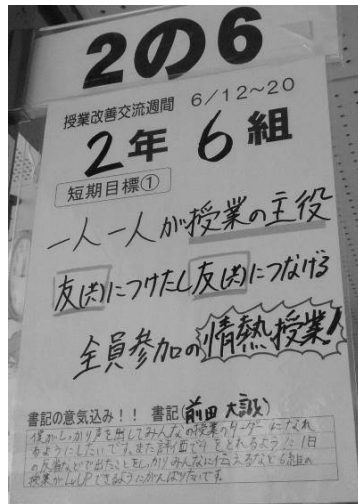 2の6
授業改善交流週間 6/12~20
2年 6組
短期目標①
一人一人が授業の主役
友(共)につけたし友(共)につなげる
全員参加の情熱授業!
書記の意気込み!! 書記(前田 大誠)
僕がしっかり声を出してみんなの授業のリーダーになれ
るようにしたいです。また評価で4をとれるように1日
の反省などで出たことをしっかりみんなに伝えるなど6組の
授業がLvUPできるようにがんばりたいです。